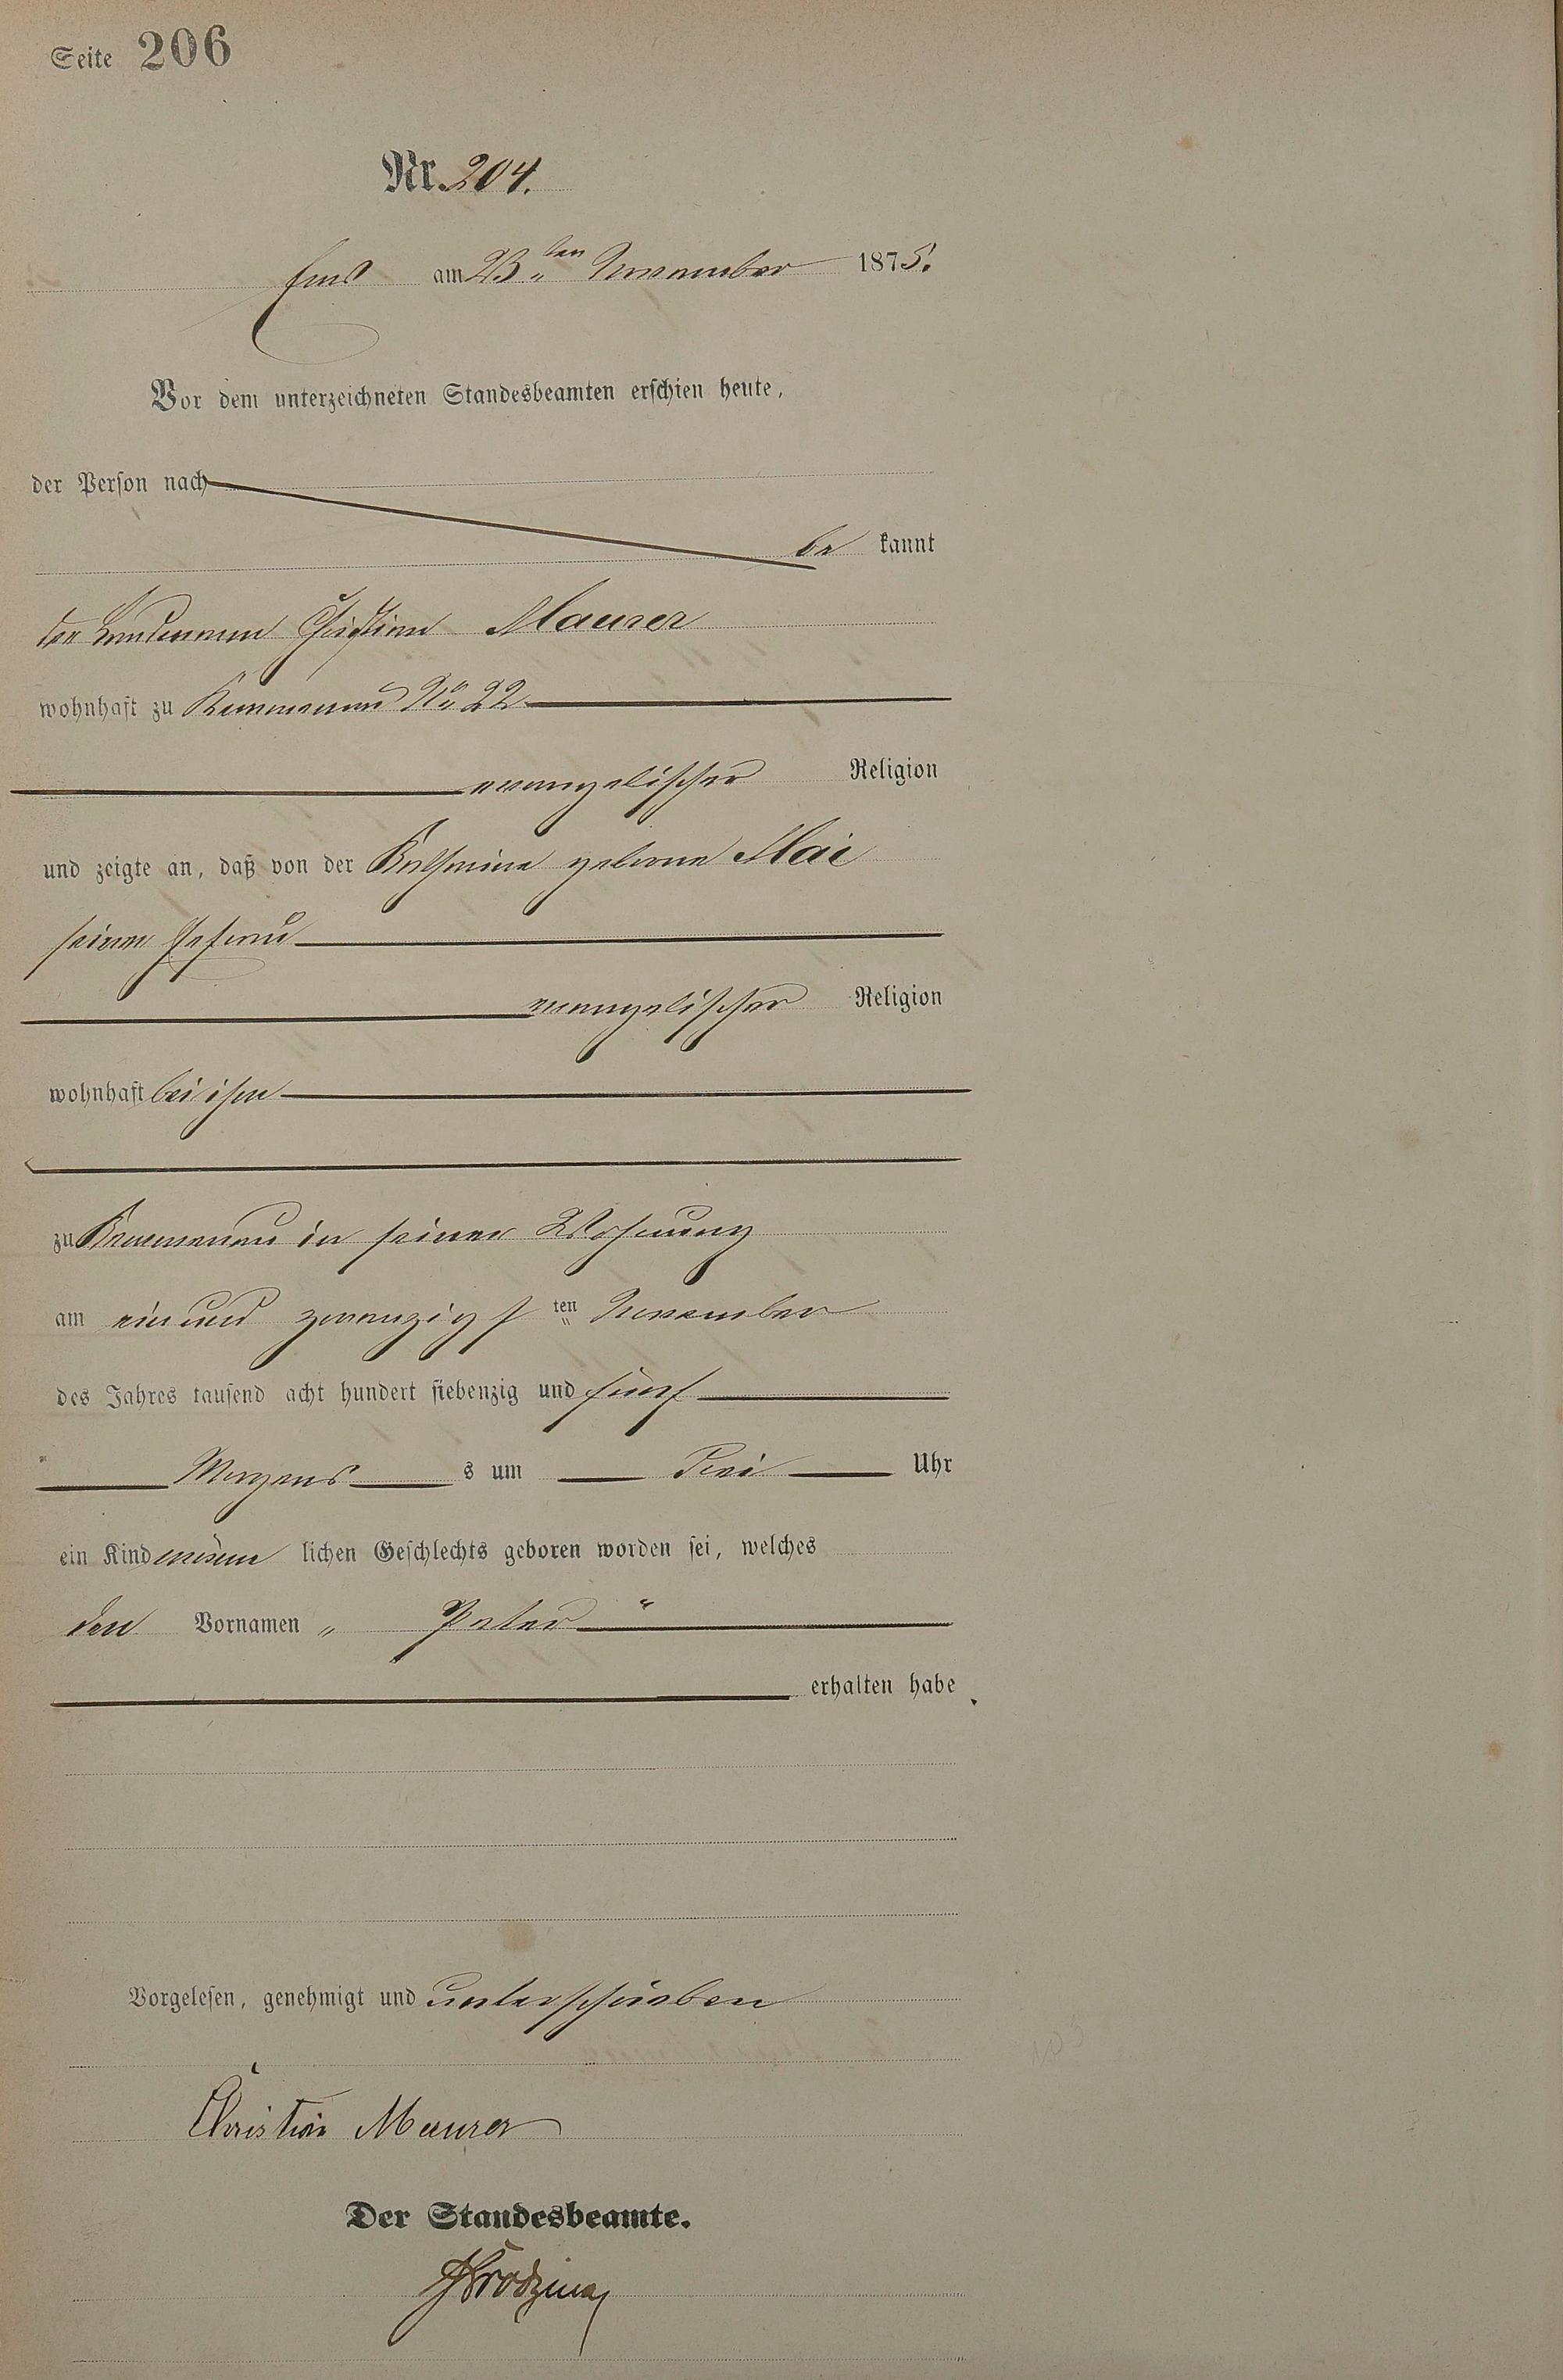 Seite 206
Nr. 204.
Ems am 23ten November 1875.
Vor dem unterzeichneten Standesbeamten erschien heute,
der Person nach
be kannt
der Landmann Christian Maurer
wohnhaft zu Kemmenau No 22
evangelischer Religion
und zeigte an, daß von der Katharina geborne Mai
seiner Ehefrau
evangelischer Religion
wohnhaft bei ihm
zu Kemmenau in seiner Wohnung
am ein und zwanzigsten November
des Jahres tausend acht hundert siebenzig und fünf
Morgens s um drei Uhr
ein Kind männ lichen Geschlechts geboren worden sei, welches
den Vornamen „ Peter "
erhalten habe.
Vorgelesen, genehmigt und unterschrieben
Christian Maurer
Der Standesbeamte.